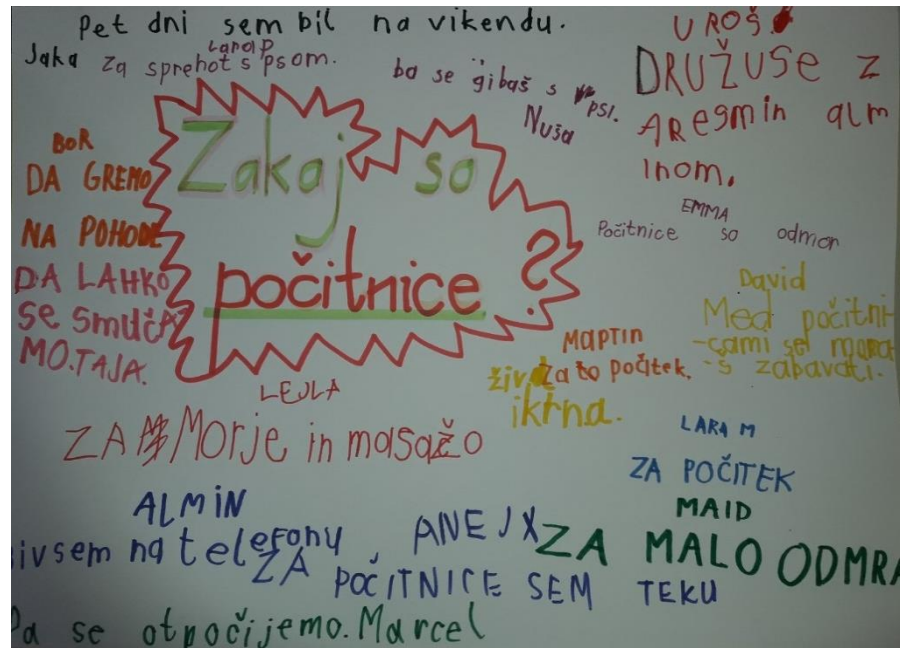 Pet dni sem bil na vikendu.
Jaka
Lara P
za sprehot s psom.
ba se gibaš s psi.
Nuša
UROŠ.
DRUŽUSE z
AResmin alm
inom.
BOR
DA GREMO
NA POHODE
DA LAHKO
se smučA
MO. TAJA.
Zakaj so
počitnice?
EMMA
Počitnice so odmor
David
Med počitni-
-cami se mora-
š zabavati.
MARTIN
Za to počitek.
živ
ikrna.
LEJLA
ZA Morje in masažo
LARA M
ZA POČITEK
MAID
ZA MALO ODMRA
ALMIN
ivsem na telefonu
ANEJX
ZA POČITNICE SEM TEKU
Da se otpočijemo. Marcel